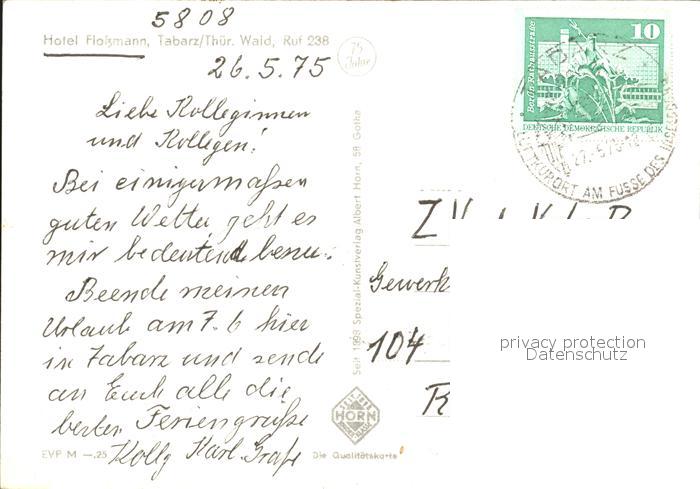 5808
Hotel Floßmann, Tabarz/Thür. Wald, Ruf 238
75 Jahre
26.5.75
Liebe Kolleginnen
und Kollegen!
Bei einigermaßen
guten Wetter geht es
mir bedeutend besser.
Beende meinen
Urlaub am 7.6 hier
in Tabarz und sende
an Euch alle die
besten Feriengrüße
Kollg Karl. Grafe
EVP M —.25
Seit 1898 Spezial-Kunstverlag Albert Horn, 58 Gotha
HORN
Die Qualitätskarte
Berlin, Rathausstraße
10
DEUTSCHE DEMOKRATISCHE REPUBLIK
27.-5.75
LUFTKURORT AM FUSSE DES INSELSBERGES
Gewerk
104
privacy protection
Datenschutz